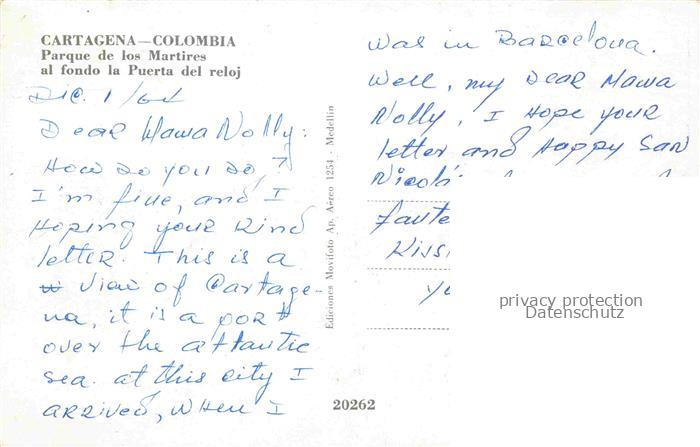 CARTAGENA—COLOMBIA
Parque de los Martires
al fondo la Puerta del reloj
Dic. 1/64
Dear Mama Nolly:
How do you do,?
I'm fine, and I
Hoping your kind
letter. This is a
view of Cartage-
na, it is a port
over the atlantic
sea. at this city I
arrived, when I
was in Barcelona.
Well, my Dear Mama
Nolly, I Hope your
letter and Happy San
Nicolá
fante
Kiss
yo
Ediciones Movifoto Ap. Aéreo 1254 - Medellin
20262
privacy protection
Datenschutz